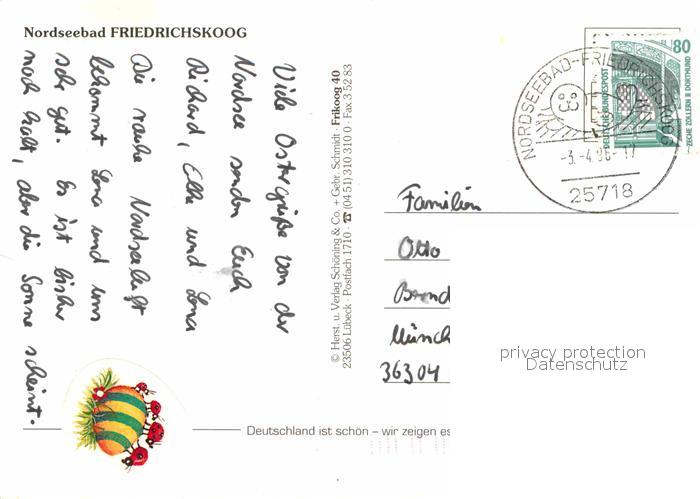 Nordseebad FRIEDRICHSKOOG
Viele Ostergrüße von der
Nordsee senden Euch
Richard, Elke und Lena
Die rauhe Nordseeluft
bekommt Lena und uns
sehr gut. Es ist bisher
noch kalt, aber die Sonne scheint.
© Herst. u. Verlag Schöning & Co. + Gebr. Schmidt · Frikoog 40
23506 Lübeck · Postfach 1710 · ☎ (04 51) 310 310 0 · Fax 3 52 83
NORDSEEBAD-FRIEDRICHSKOOG
-3.-4.96.-17
25718
80
DEUTSCHE BUNDESPOST
ZECHE ZOLLERN II DORTMUND
Familien
Otto
Bernd
Münch
36304
privacy protection
Datenschutz
Deutschland ist schön – wir zeigen es